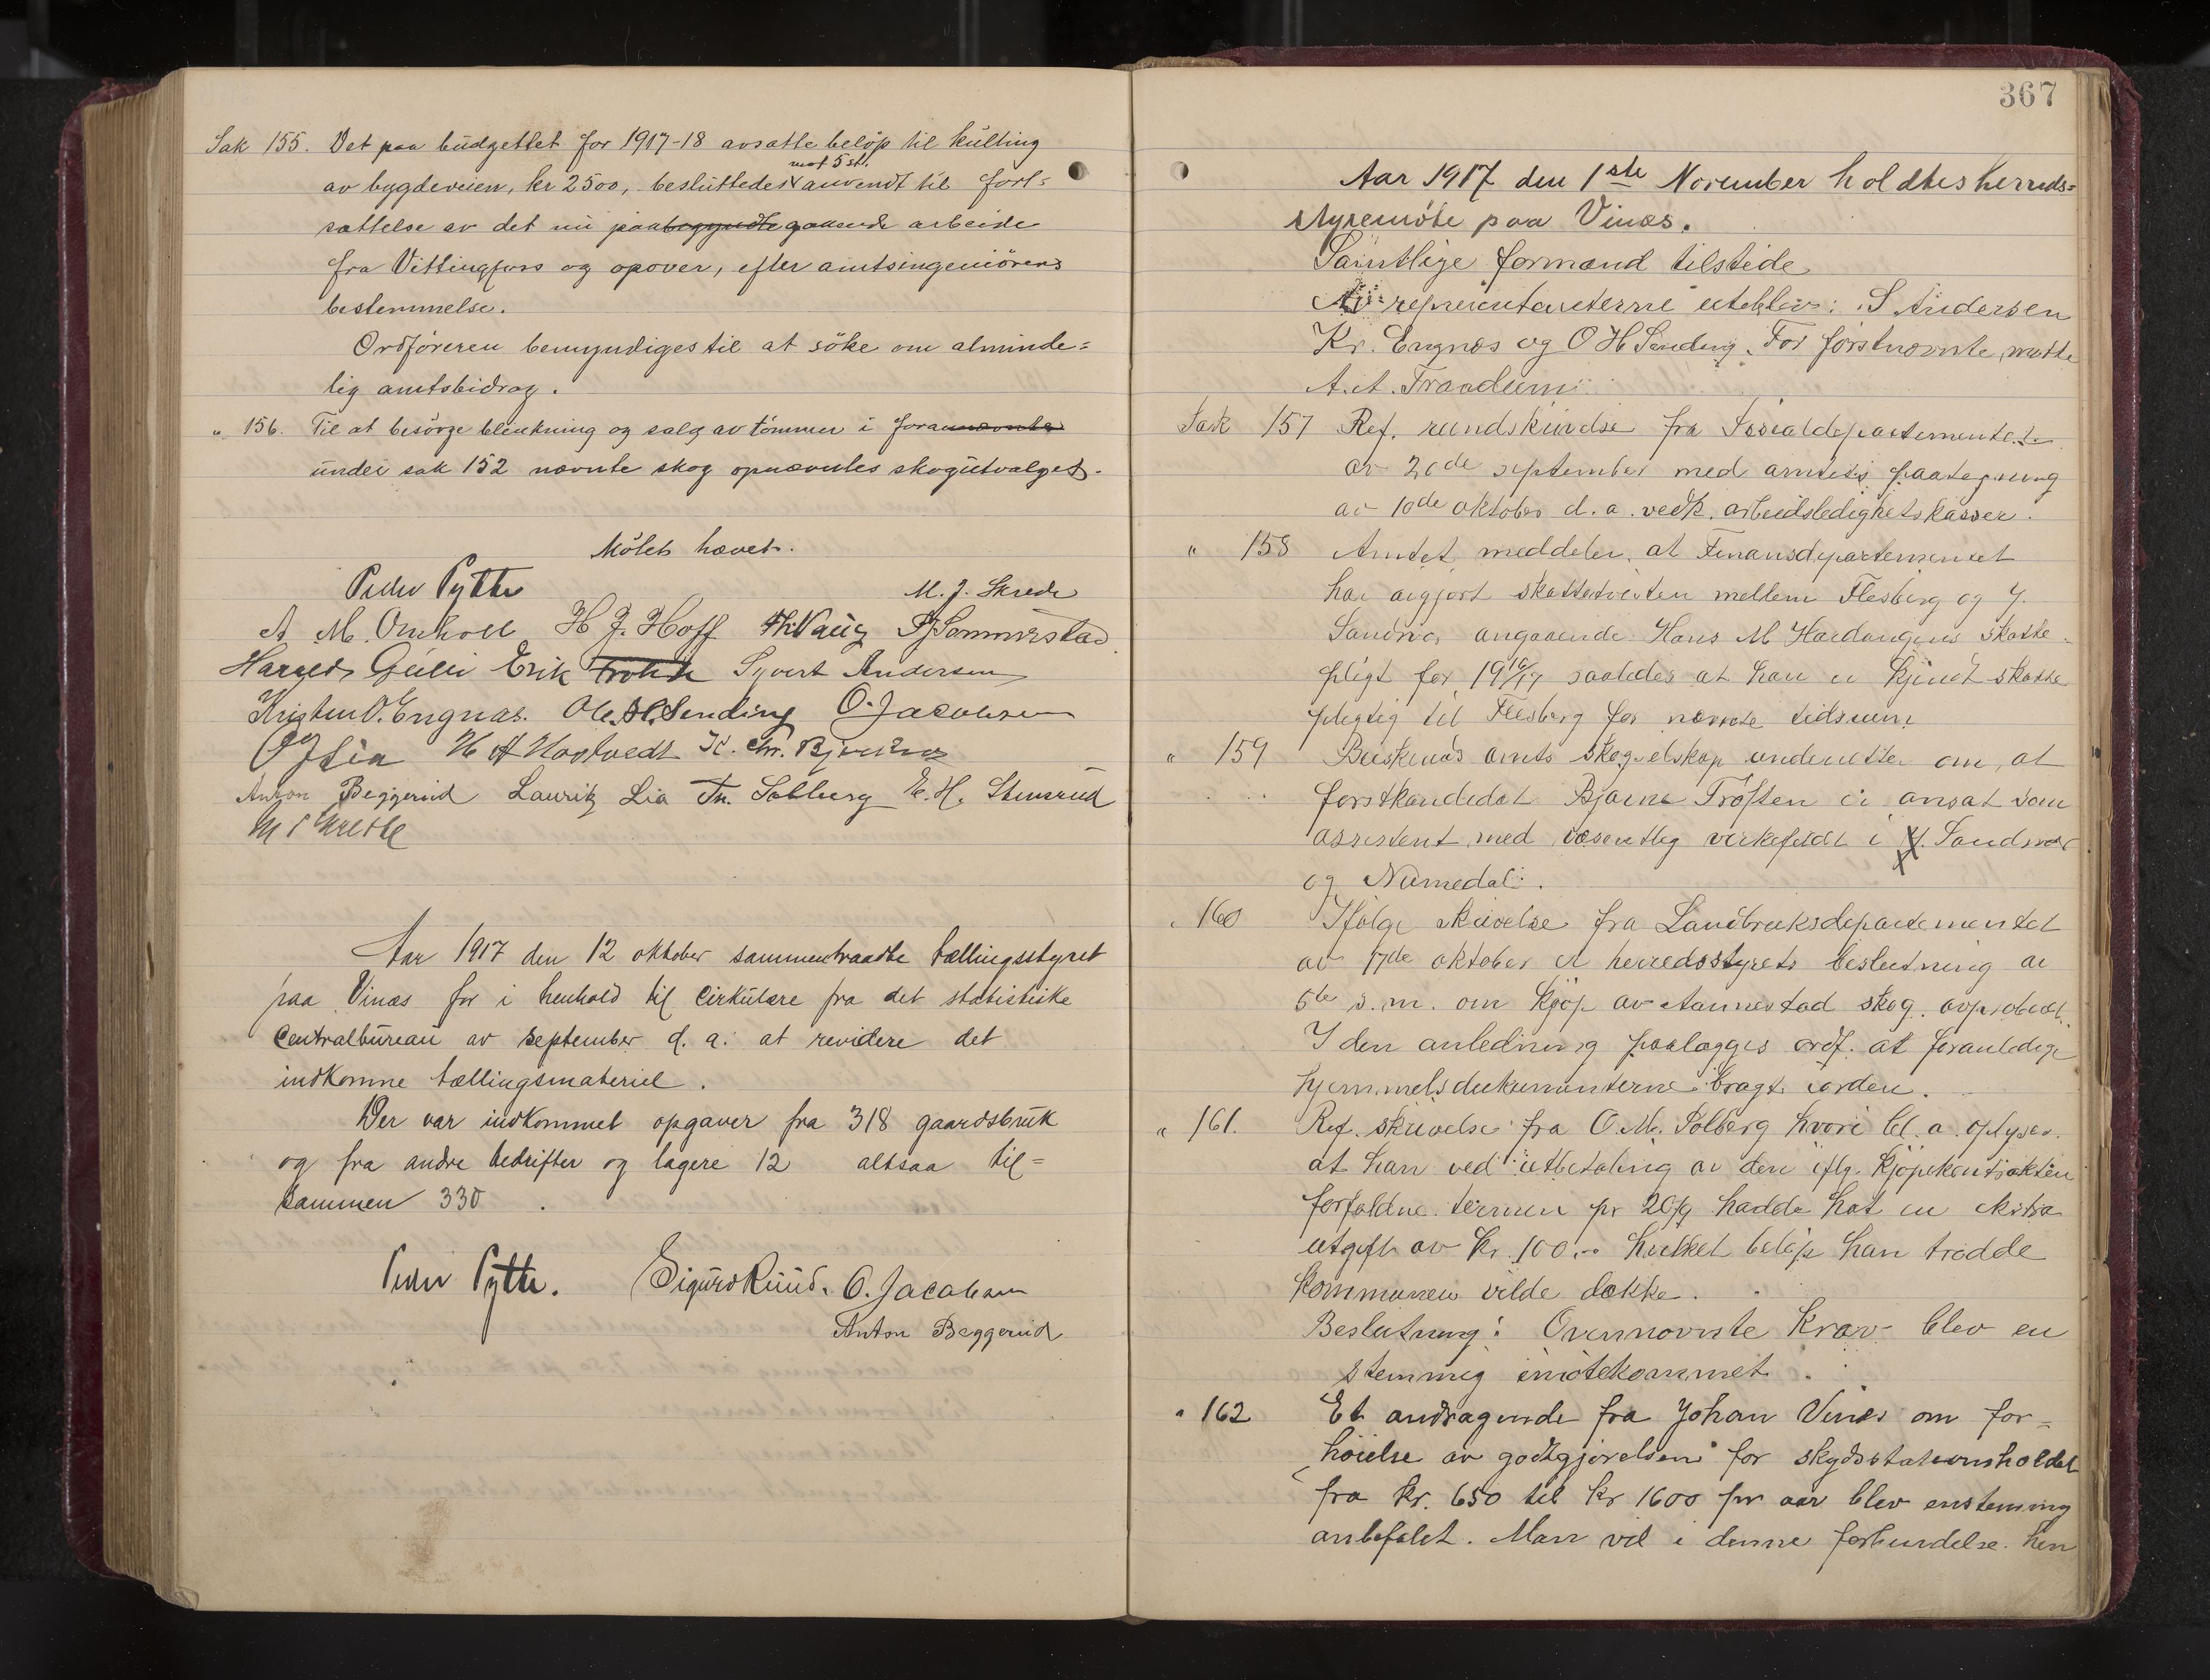 Sak 155. Det paa budgettet for 1917-18 avsatte beløp til kulting
mot 5 st.
av bygdeveien, kr 2500, besluttedes anvendt til fort=
sættelse av det nu paabegyndte gaaende arbeide
fra Vittingfoss og opover, efter amtsingeniörens
bestemmelse.
Ordföreren bemyndiges til at söke om alminde=
lig amtsbidrag.
" 156. Til at besörge blinkning og salg av tömmer i forannævnte
under sak 152 nævnte skog opnævntes skogutvalget.
Mötet hævet.
Peder Pytte M. J. Skrede
A. M. Omholt H J. Hoff Th Vaug P J Sommerstad
Harald Gulli Erik Syvert Andersen
Kristen O. Engnæs. Ole H. Sending O. Jacobsen
O J Lia H H Hostvedt K. Chr.
Anton Beggerud Lauritz Lia Th. Solberg E. H. Stensrud
Aar 1917 den 12 oktober sammentraadte tællingsstyret
paa Vinæs for i henhold til Cirkulære fra det statistiske
Centralbureau av september d. a. at revidere det
indkomne tællingsmateriel.
Der var indkommet opgaver fra 318 gaardsbruk
og fra andre bedrifter og lagere 12 altsaa til=
sammen 330.
Peder Pytte. Sigurd Ruud. O. Jacobsen
Anton Beggerud
367
Aar 1917 den 1ste November holdtes herreds=
styremöte paa Vinæs.
Samtlige formænd tilstede
Av representanterne uteblev: S Andersen
Kr. Engnæs og O H Sending. For förstnævnte mötte
A. A. Traadum
Sak 157 Ref. rundskrivelse fra Socialdepartementet
av 20de september med amtets paategning
av 10de oktober d. a. vedk. arbeidsledighetskasser.
" 158 Amtet meddeler, at Finansdepartementet
har avgjort skattetvisten mellem Flesberg og Y.
Sandsvær angaaende Hans M Hardangens skatte-
pligt for 1916/17 saaledes at han er kjendt skatte
pligtig til Flesberg for nævnte tidsrum
" 159 Buskeruds amts skogselskap underretter om, at
forstkandidat Bjarne Tröften er ansat som
assistent med væsentlig virkefeldt i Y. Sandsvær
og Numedal.
" 160 Ifölge skrivelse fra Landbruksdepartementet
av 17de oktober er herredsstyrets beslutning av
5te s. m. om kjöp av Aannestad skog approbert.
I den anledning paalægges ordf. at foranledige
hjemmelsdokumenterne bragt iorden.
" 161. Ref. skrivelse fra O. M. Solberg hvori bl. a. oplyses
at han ved utbetaling av den iflg. kjöpekontrakten
forfaldne termin pr 20/9 hadde hat en ekstra
utgift av kr. 100.- hvilket belöp han trodde
kommunen vilde dække.
Beslutning: Ovennævnte krav blev en
stemmig imötekommet.
" 162 Et andragende fra Johan Vinæs om for=
höielse av godtgjörelsen for skydsstationsholdet
fra kr. 650 til kr 1600 pr aar blev enstemmig
anbefalet. Man vil i denne forbindelse hen